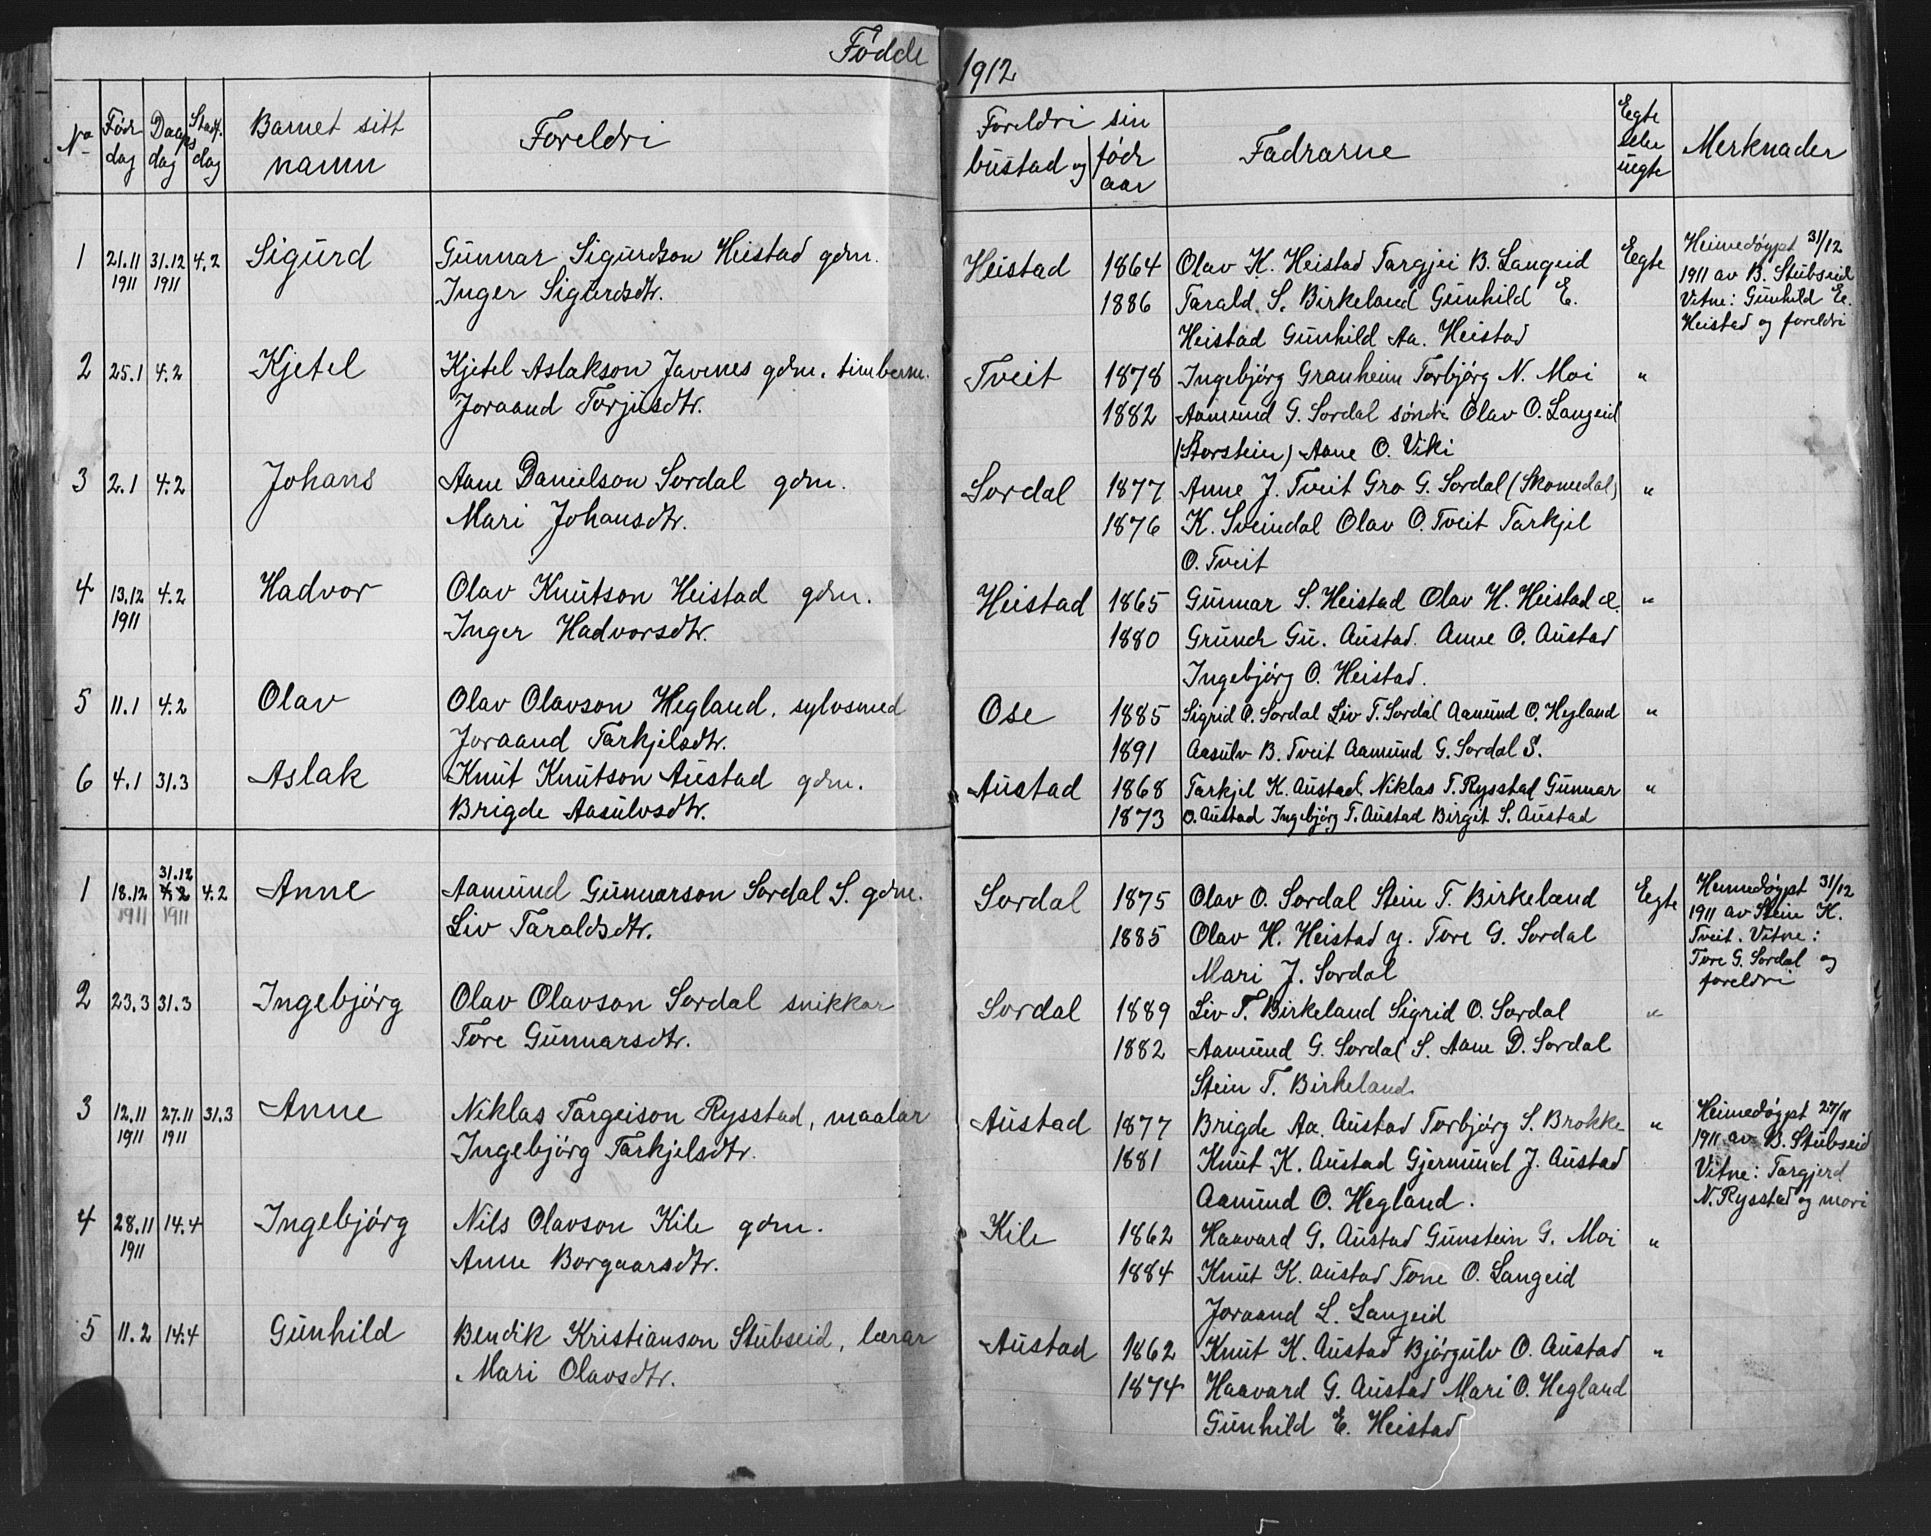 Fødde 1912
No Føde dag Daaps dag Stadf. dag Barnet sitt namn Foreldri Foreldri sin bustad og føde aar Fadrarne Egte eller uegte Merknader
1 21.11 1911 31.12 1911 4.2 Sigurd Gunnar Sigurdson Heistad gdm. Heistad 1864 Olav K. Heistad Targjei B. Langeid Egte Heimedøypt 31/12
Inger Sigurdsdtr. 1886 Tarald S. Birkeland Gunhild E. 1911 av B. Stubseid
Heistad Gunhild Aa. Heistad Vitne: Gunhild E.
Heistad og foreldri
2 25.1 4.2 Kjetel Kjetel Aslakson Javnes gdm. timberm. Tveit 1878 Ingebjørg Granheim Torbjørg N. Moi "
Joraand Torjusdtr. 1882 Aamund G. Sordal søndr Olav O. Langeid
(Storstein) Aane O. Viki
3 2.1 4.2 Johans Aane Danielson Sordal gdm. Sordal 1877 Anne J. Tveit Gro G. Sordal (Skomedal) "
Mari Johansdtr. 1876 K. Sveindal Olav O. Tveit Tarkjel
O. Tveit
4 13.12 1911 4.2 Hadvor Olav Knutson Heistad gdm. Heistad 1865 Gunnar S. Heistad Olav H. Heistad æ. "
Inger Hadvorsdtr. 1880 Gunnh Gu. Austad. Anne O. Austad
Ingebjørg O. Heistad.
5 11.1 4.2 Olav Olav Olavson Hegland. sylvsmed Ose 1885 Sigrid O. Sordal Liv T. Sordal Aamund O. Hegland "
Joraand Tarkjelsdtr. 1891 Aasulv B. Tveit Aamund G. Sordal S.
6 4.1 31.3 Aslak Knut Knutson Austad gdm. Austad 1868 Tarkjel K. Austad, Niklas T. Rysstad Gunnar "
Brigde Aasulvsdtr. 1873 O. Austad Ingebjørg T. Austad Birgit S. Austad
1 18.12 1911 31.12 1911 4.2 Anne Aamund Gunnarson Sordal S. gdm. Sordal 1875 Olav O. Sordal Stein T. Birkeland Egte Heimedøypt 31/12
Liv Taraldsdtr. 1885 Olav H. Heistad y. Tore G. Sordal 1911 av Stein K.
Mari J. Sordal Tveit. Vitne:
Tore G. Sordal og
foreldri
2 23.3 31.3 Ingebjørg Olav Olavson Sordal snikkar Sordal 1889 Liv T. Birkeland Sigrid O. Sordal "
Tore Gunnarsdtr. 1882 Aamund G. Sordal S. Aane D. Sordal
Stein T. Birkeland
3 12.11 1911 27.11 1911 31.3 Anne Niklas Targeison Rysstad, maalar Austad 1877 Brigde Aa. Austad Torbjørg S. Brokke " Heimedøypt 27/11
Ingebjørg Tarkjelsdtr. 1881 Knut K. Austad Gjermund J. Austad 1911 av B. Stubseid
Aamund O. Hegland. Vitne: Targjerd
N. Rysstad og mori
4 28.11 1911 14.4 Ingebjørg Nils Olavson Kile gdm. Kile 1862 Haavard G. Austad Gunstein G. Moi "
Anne Borgaarsdtr. 1884 Knut K. Austad Tone O. Langeid
Joraand L. Langeid
5 11.2 14.4 Gunhild Bendik Kristianson Stubseid, lærar Austad 1862 Knut K. Austad Bjørgulv O. Austad "
Mari Olavsdtr. 1874 Haavard G. Austad Mari O. Hegland
Gunhild E. Heistad
5